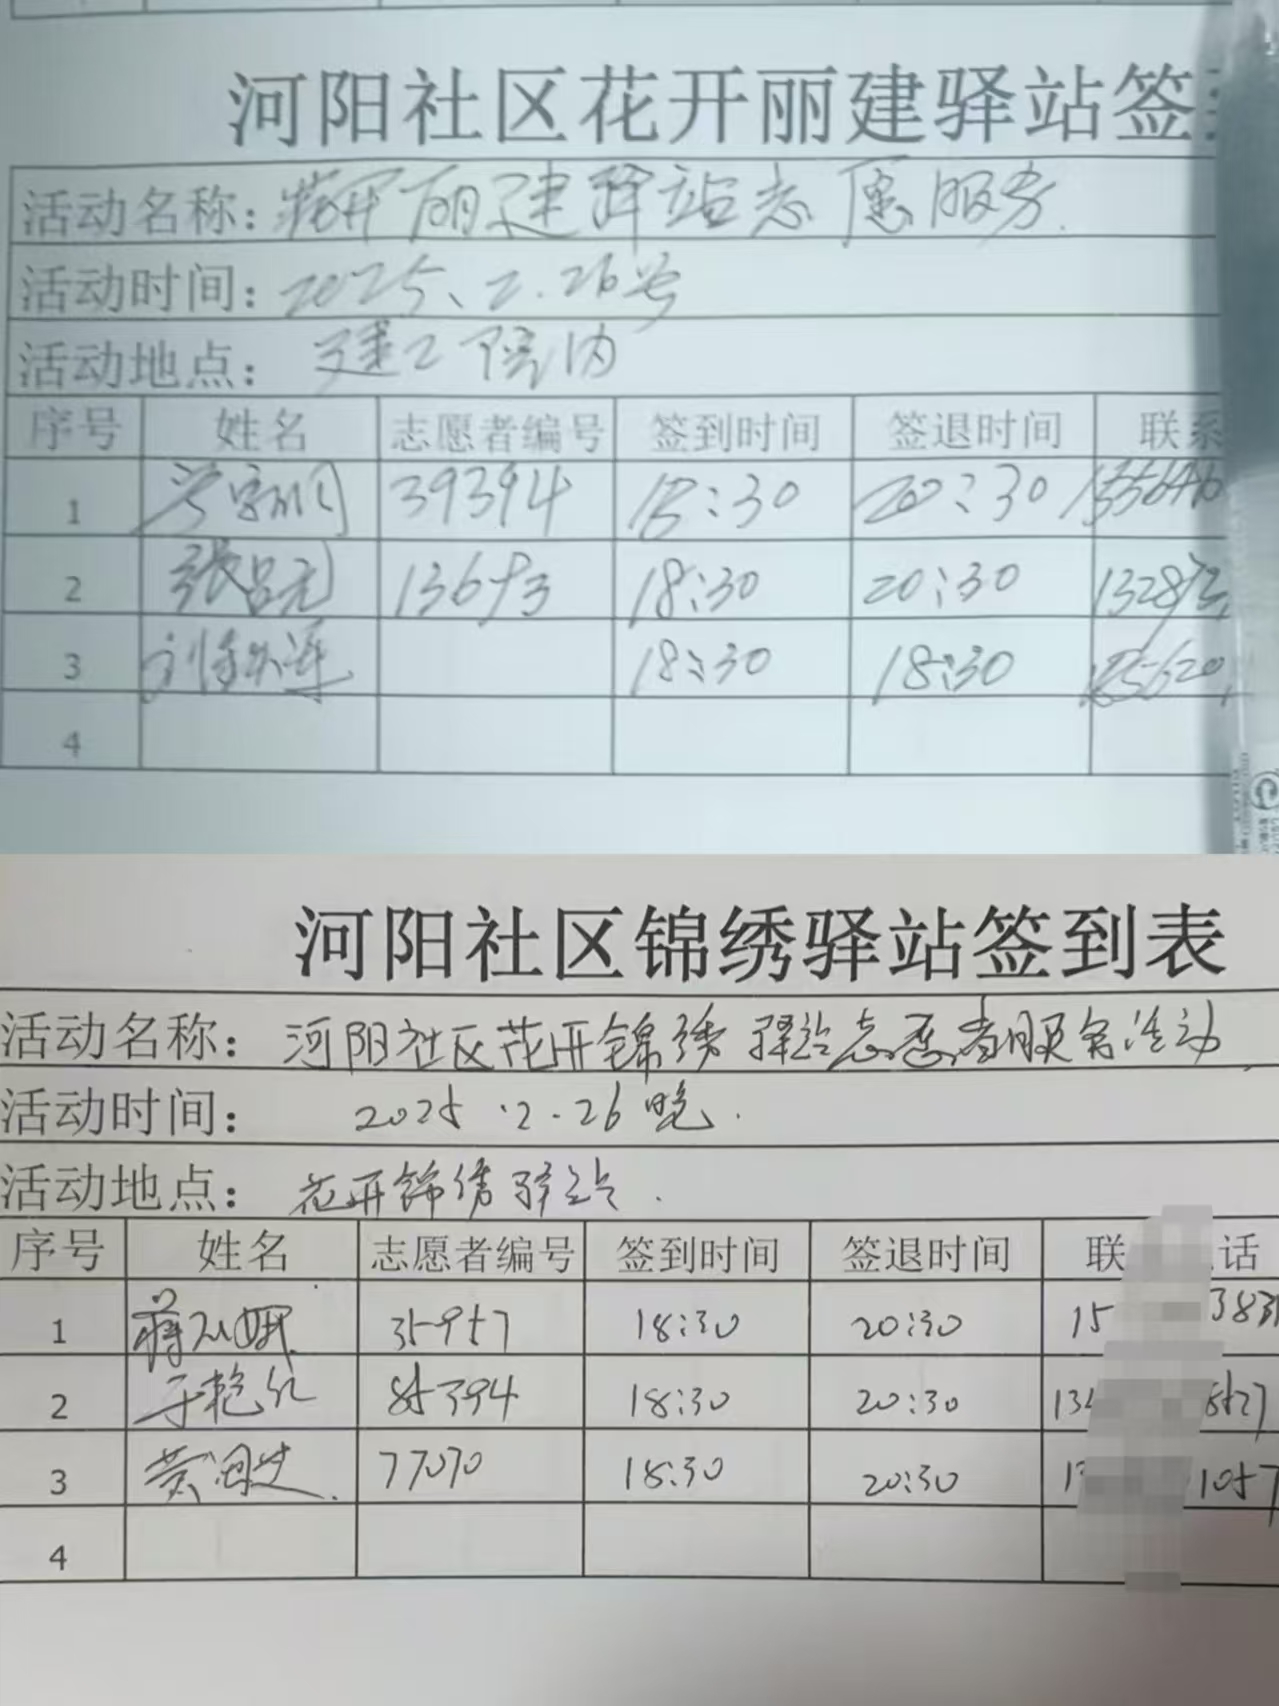 河阳社区花开丽建驿站签
活动名称：花开丽建驿站志愿服务.
活动时间：2025、2.26号
活动地点：建工院内
序号 姓名 志愿者编号 签到时间 签退时间 联系
1 39394 18:30 20:30
2 张吕元 13693 18:30 20:30
3 18:30 18:30
4
河阳社区锦绣驿站签到表
活动名称：河阳社区花开锦绣驿站志愿者服务活动
活动时间：2025.2.26晚.
活动地点：花开锦绣驿站.
序号 姓名 志愿者编号 签到时间 签退时间 联 话
1 35957 18:30 20:30 15 383
2 于艳红 85394 18:30 20:30 13
3 77070 18:30 20:30 1 1057
4